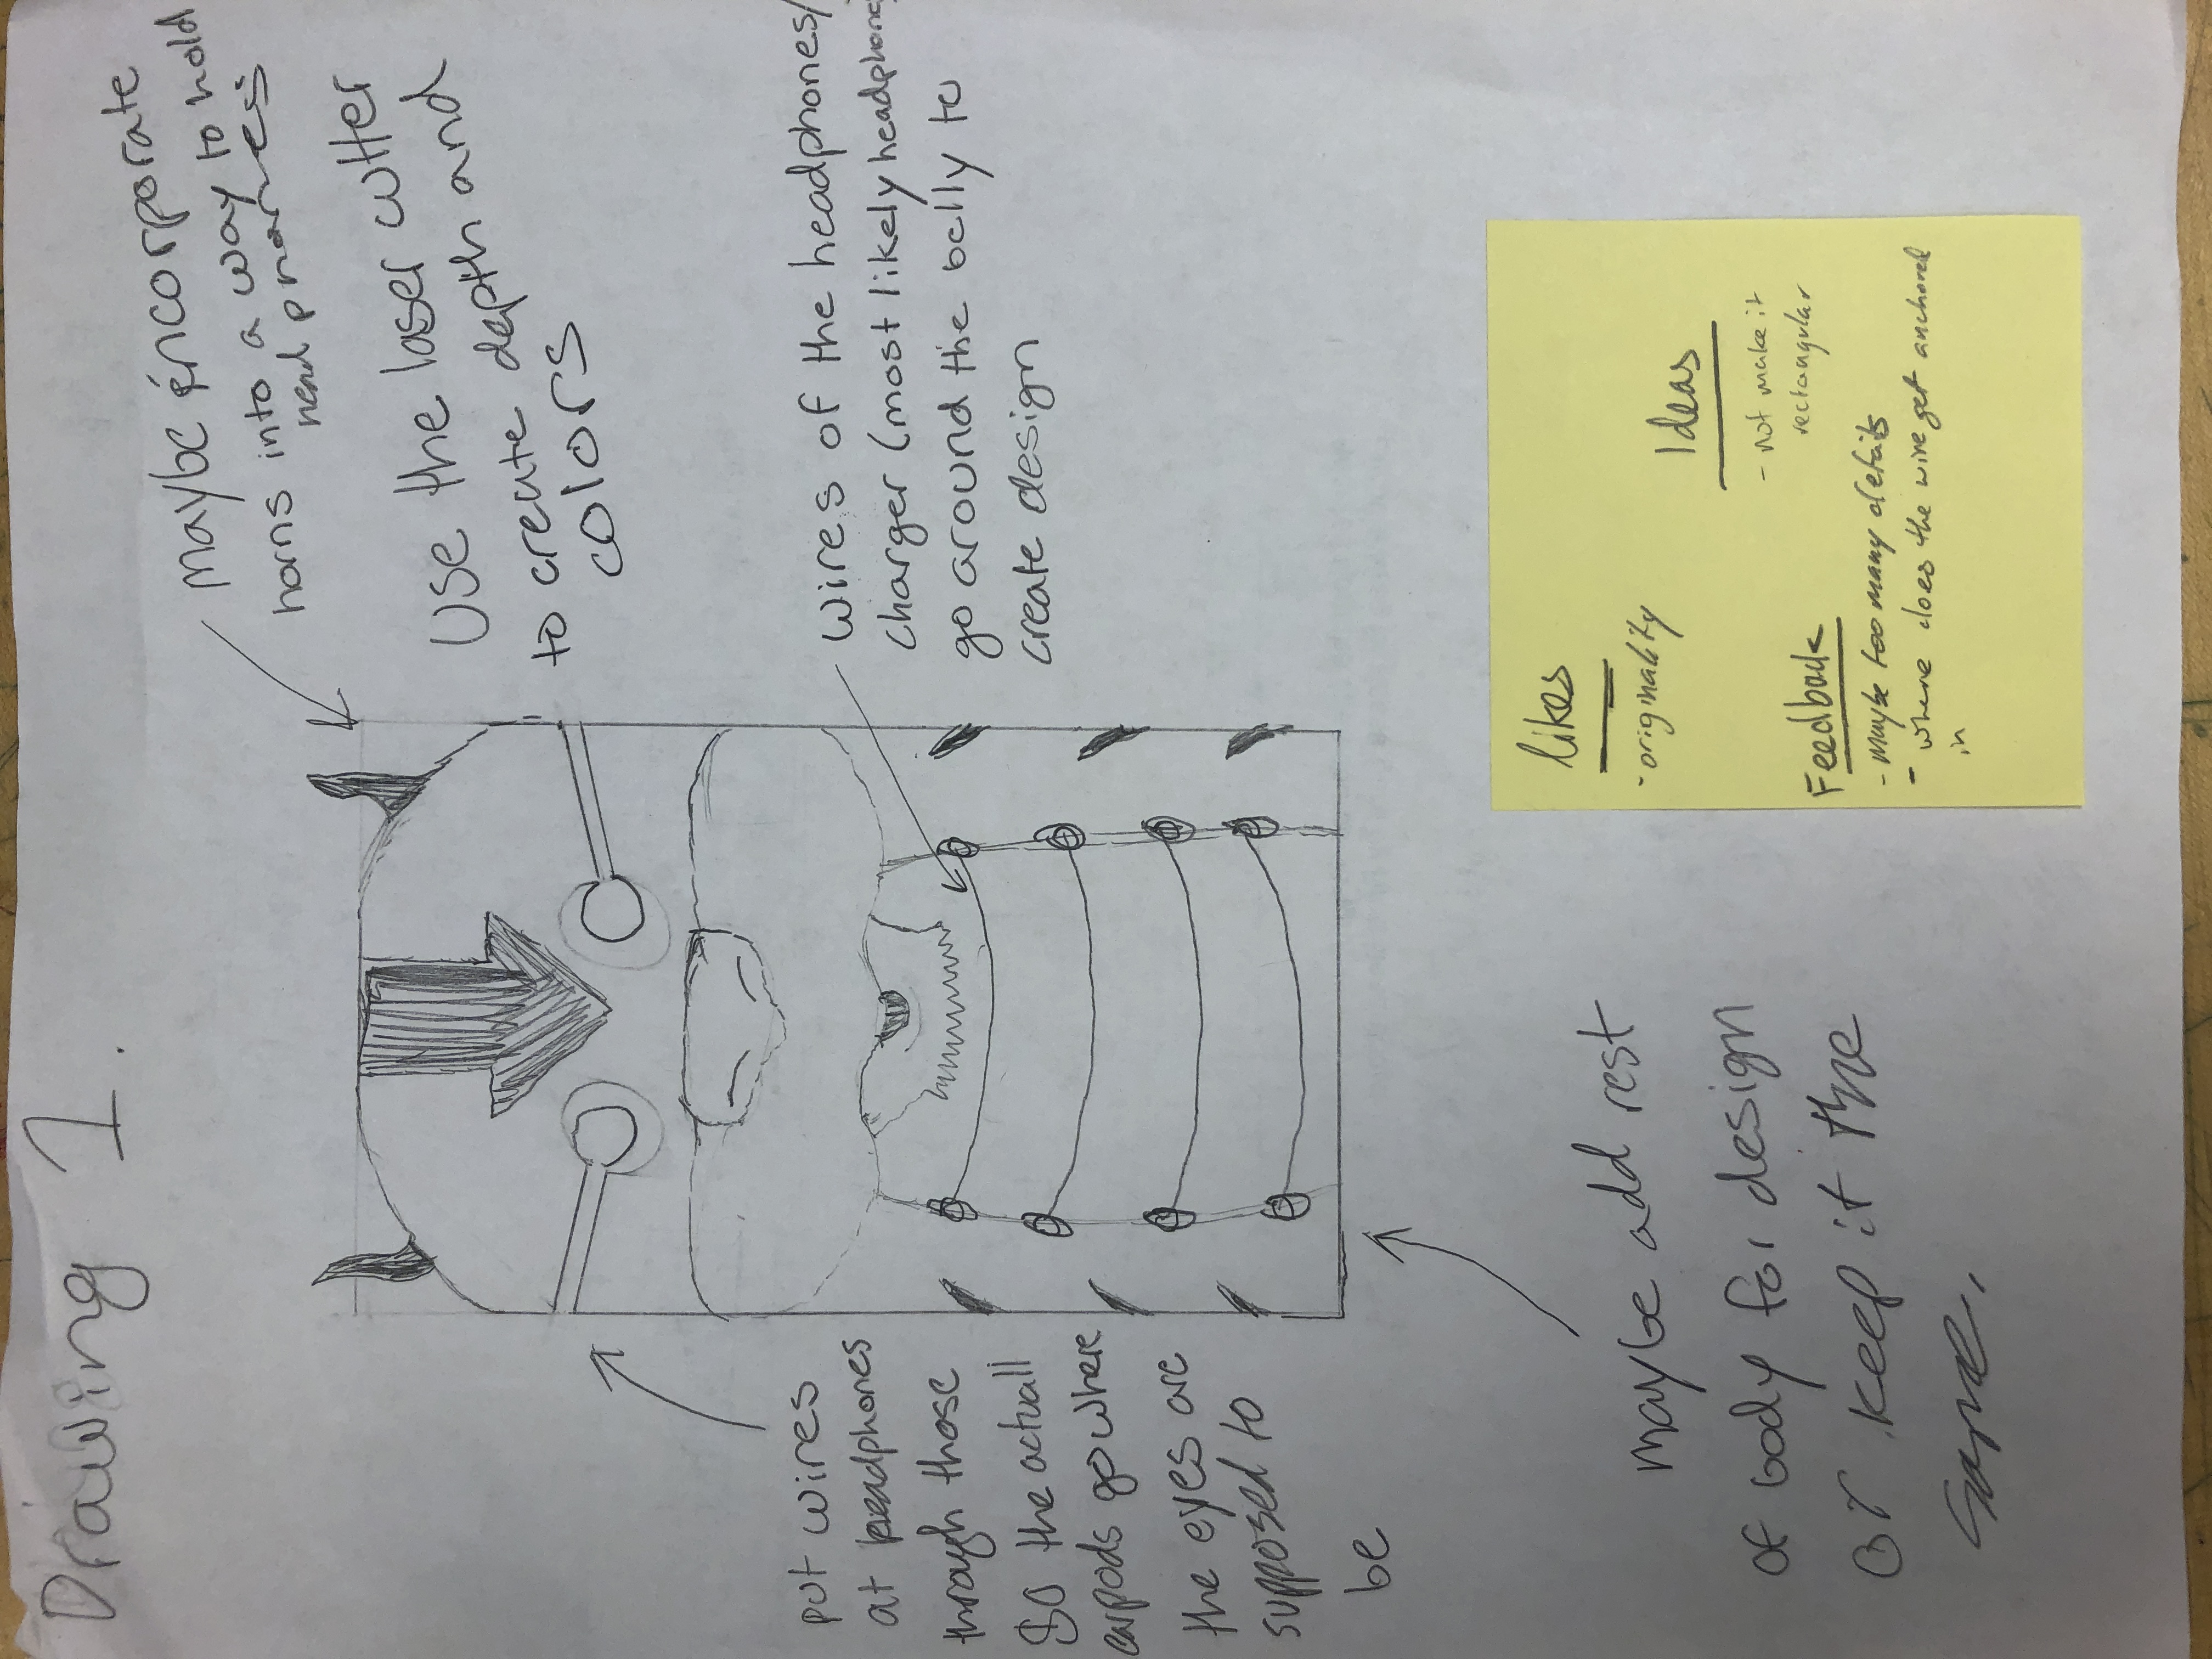 Drawing 1.
maybe incorporate
horns into a way to hold
head phones
Use the laser cutter
to create depth and
colors
put wires
at headphones
through those
so the actuall
earpods go where
the eyes are
supposed to
be
wires of the headphones/
charger (most likely headphones
go around the belly to
create design
maybe add rest
of body for design
or keep it the
same.
likes
- originality
Ideas
- not make it
rectangular
Feedback
- maybe too many details
- where does the wire get anchored
in